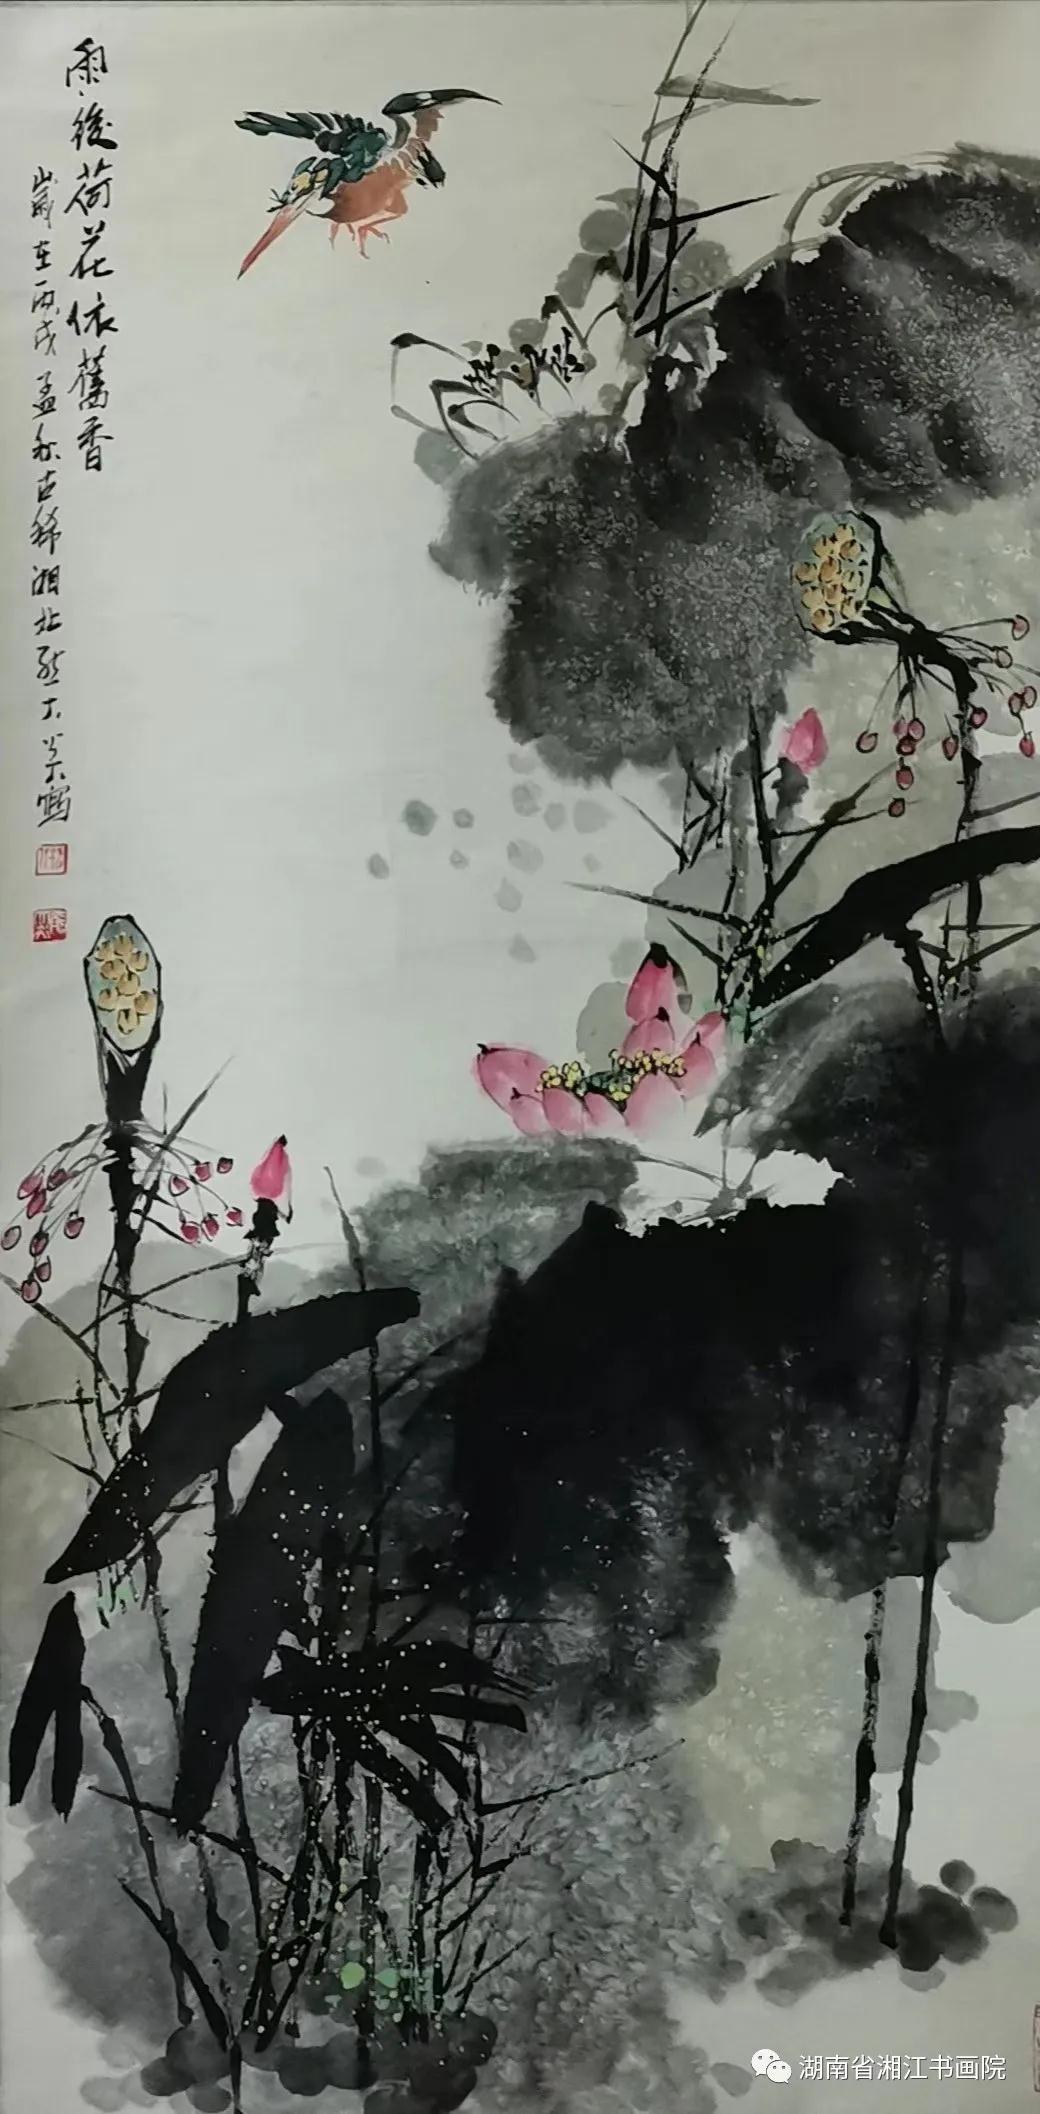 雨後荷花依舊香
歲在丙戌孟秋古稀湘北
寫
湖南省湘江书画院